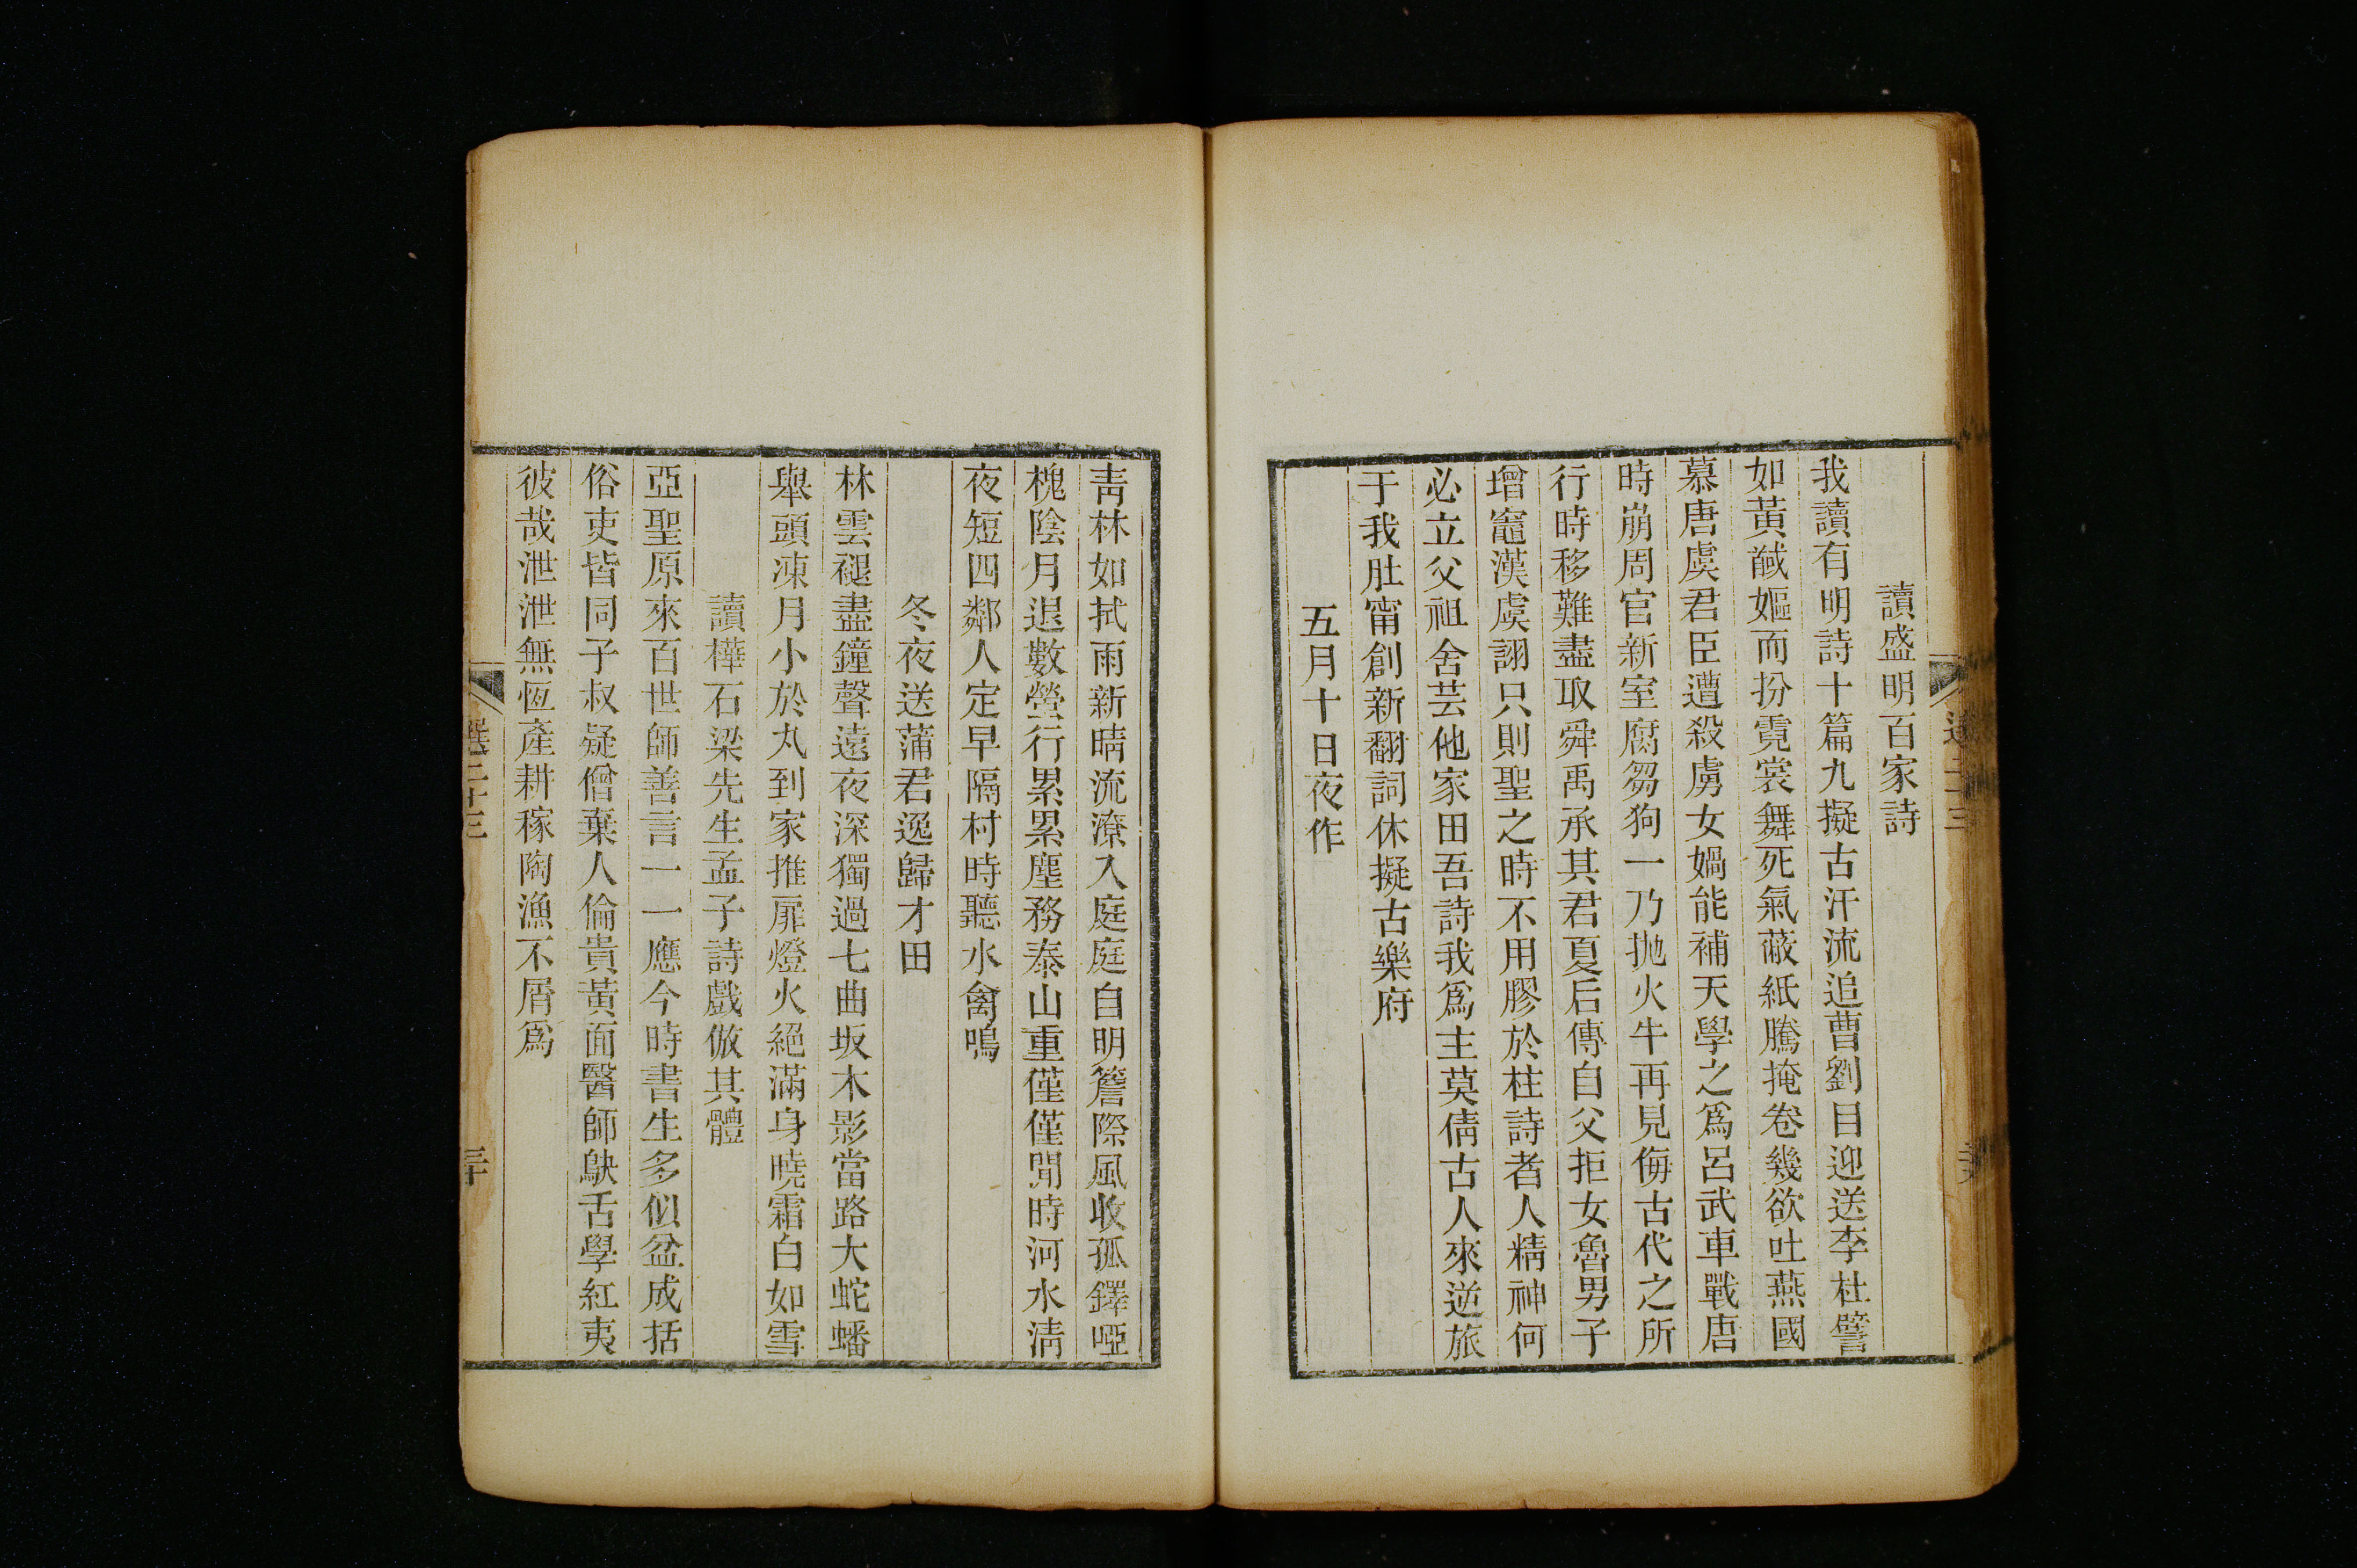 讀盛明百家詩
我讀有明詩十篇九擬古汗流追曹劉目迎送李杜譬
如黃馘嫗而扮霓裳舞死氣蔽紙騰掩卷幾欲吐燕國
慕唐虞君臣遭殺虜女媧能補天學之爲呂武車戰唐
時崩周官新室腐芻狗一乃拋火牛再見侮古代之所
行時移難盡取舜禹承其君夏后傳自父拒女魯男子
增竈漢虞詡只則聖之時不用膠於柱詩者人精神何
必立父祖舍芸他家田吾詩我爲主莫倩古人來逆旅
于我肚甯創新翻詞休擬古樂府
五月十日夜作
青林如拭雨新晴流潦入庭庭自明簷際風收孤鐸啞
槐陰月退數螢行累累塵務泰山重僅僅閒時河水淸
夜短四鄰人定早隔村時聽水禽鳴
冬夜送蒲君逸歸才田
林雲褪盡鐘聲遠夜深獨過七曲坂木影當路大蛇蟠
舉頭凍月小於丸到家推扉燈火絕滿身曉霜白如雪
讀樺石梁先生孟子詩戲倣其體
亞聖原來百世師善言一一應今時書生多似盆成括
俗吏皆同子叔疑僧棄人倫貴黃面醫師鴃舌學紅夷
彼哉泄泄無恆產耕稼陶漁不屑爲
選二十三
三十